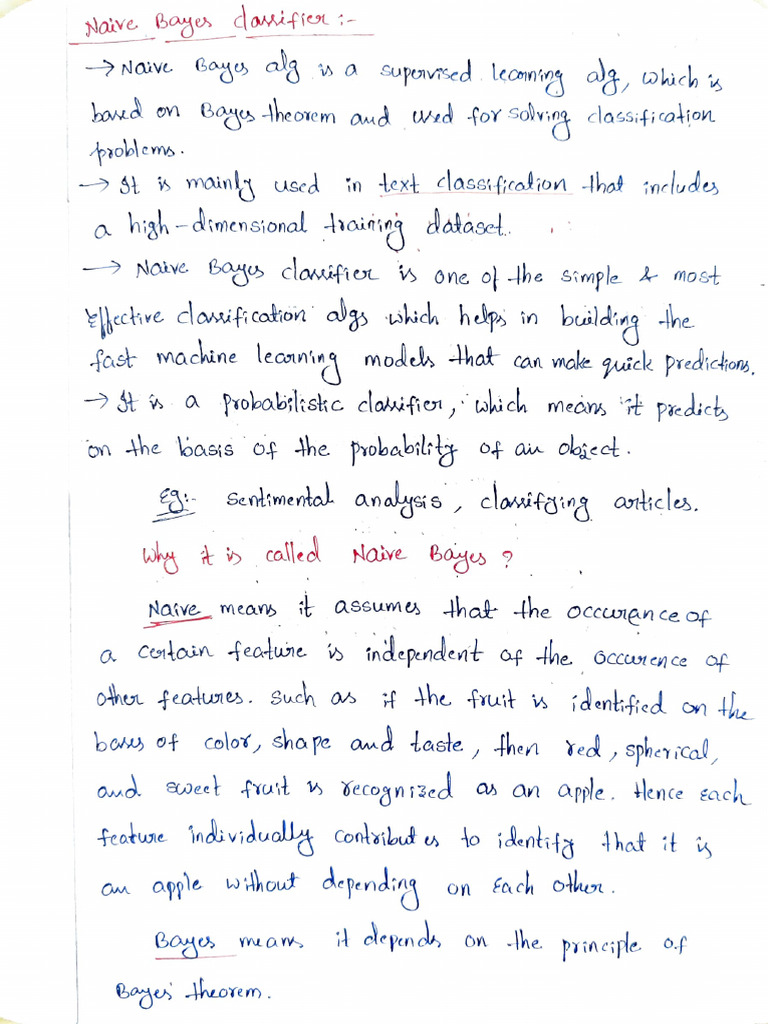 Naive Bayes classifier :-
→ Naive Bayes alg is a supervised learning alg, which is
based on Bayes theorem and used for solving classification
problems.
→ It is mainly used in text classification that includes
a high-dimensional training dataset.
→ Naive Bayes classifier is one of the simple & most
Effective classification algs which helps in building the
fast machine learning models that can make quick predictions.
→ It is a probabilistic classifier, which means it predicts
on the basis of the probability of an object.
Eg:- Sentimental analysis, classifying articles.
Why it is called Naive Bayes ?
Naive means it assumes that the occurance of
a certain feature is independent of the occurence of
other features. Such as if the fruit is identified on the
bases of color, shape and taste, then red, spherical,
and sweet fruit is recognized as an apple. Hence each
feature individually contributes to identify that it is
an apple without depending on each other.
Bayes means it depends on the principle of
Bayes' theorem.